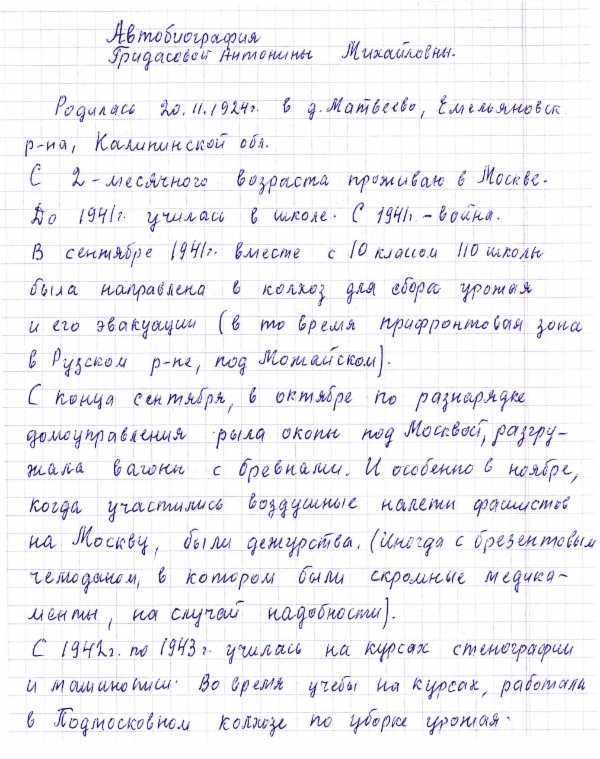 Автобиография
Гридасовой Антонины Михайловны.
Родилась 20.11.1924г. в д. Матвеево, Емельяновск
р-на, Калининской обл.
С 2-месячного возраста проживаю в Москве.
До 1941г. училась в школе. С 1941г. - война.
В сентябре 1941г. вместе с 10 классом 110 школы
была направлена в колхоз для сбора урожая
и его эвакуации (в то время прифронтовая зона
в Рузском р-не, под Можайском).
С конца сентября, в октябре по разнарядке
домоуправления рыла окопы под Москвой, разгру-
жала вагоны с бревнами. И особенно в ноябре,
когда участились воздушные налеты фашистов
на Москву, были дежурства. (Иногда с брезентовым
чемоданом, в котором были скромные медика-
менты, на случай надобности).
С 1942г. по 1943г. училась на курсах стенографии
и машинописи. Во время учебы на курсах, работала
в Подмосковном колхозе по уборке урожая.